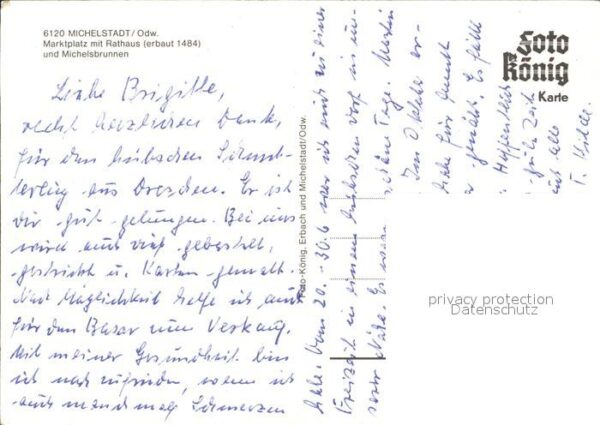 6120 MICHELSTADT/Odw.
Marktplatz mit Rathaus (erbaut 1484)
und Michelsbrunnen
Foto
König
Karte
Liebe Brigitte,
recht herzlichen Dank,
für den hübschen Schmet-
terling aus Dresden. Er ist
dir gut gelungen. Bei uns
wird auch viel gebastelt,
gestrickt u. Karten gemalt.
Nach Möglichkeit helfe ich auch
für den Basar zum Verkauf.
Mit meiner Gesundheit bin
ich noch zufrieden, wenn ich
auch manchmal Schmerzen
habe. Vom 20.-30.6 war ich noch zu einer
Freizeit in einem hübschen Dorf in un-
serer Nähe. Es waren
schöne Tage.
Im Oktober
für
gemalt. Es
Hoffentlich
gute Zeit
alle
T.
Foto-König, Erbach und Michelstadt/Odw.
privacy protection
Datenschutz